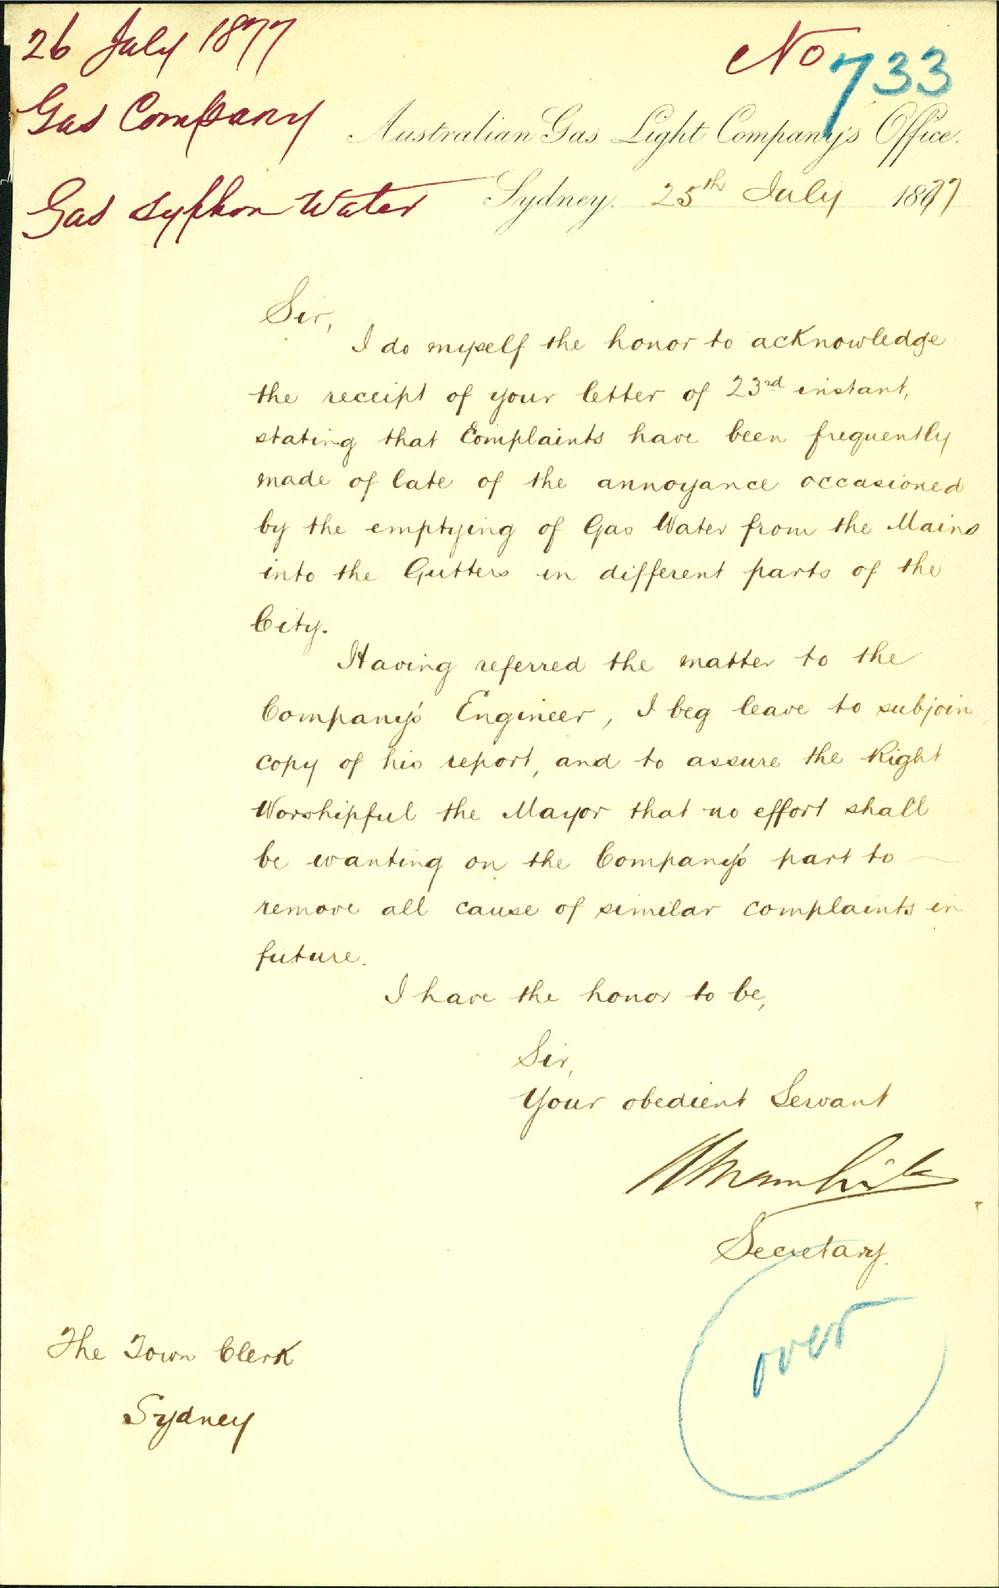 26 July 1877
No 733
Gas Company
Australian Gas Light Company's Office.
Gas Syphon Water
Sydney, 25th July 1877
Sir,
I do myself the honor to acknowledge
the receipt of your letter of 23rd instant,
stating that Complaints have been frequently
made of late of the annoyance occasioned
by the emptying of Gas Water from the Mains
into the Gutters in different parts of the
City.
Having referred the matter to the
Company's Engineer, I beg leave to subjoin
copy of his report, and to assure the Right
Worshipful the Mayor that no effort shall
be wanting on the Company's part to
remove all cause of similar complaints in
future.
I have the honor to be,
Sir,
Your obedient Servant
Secretary.
over
The Town Clerk
Sydney